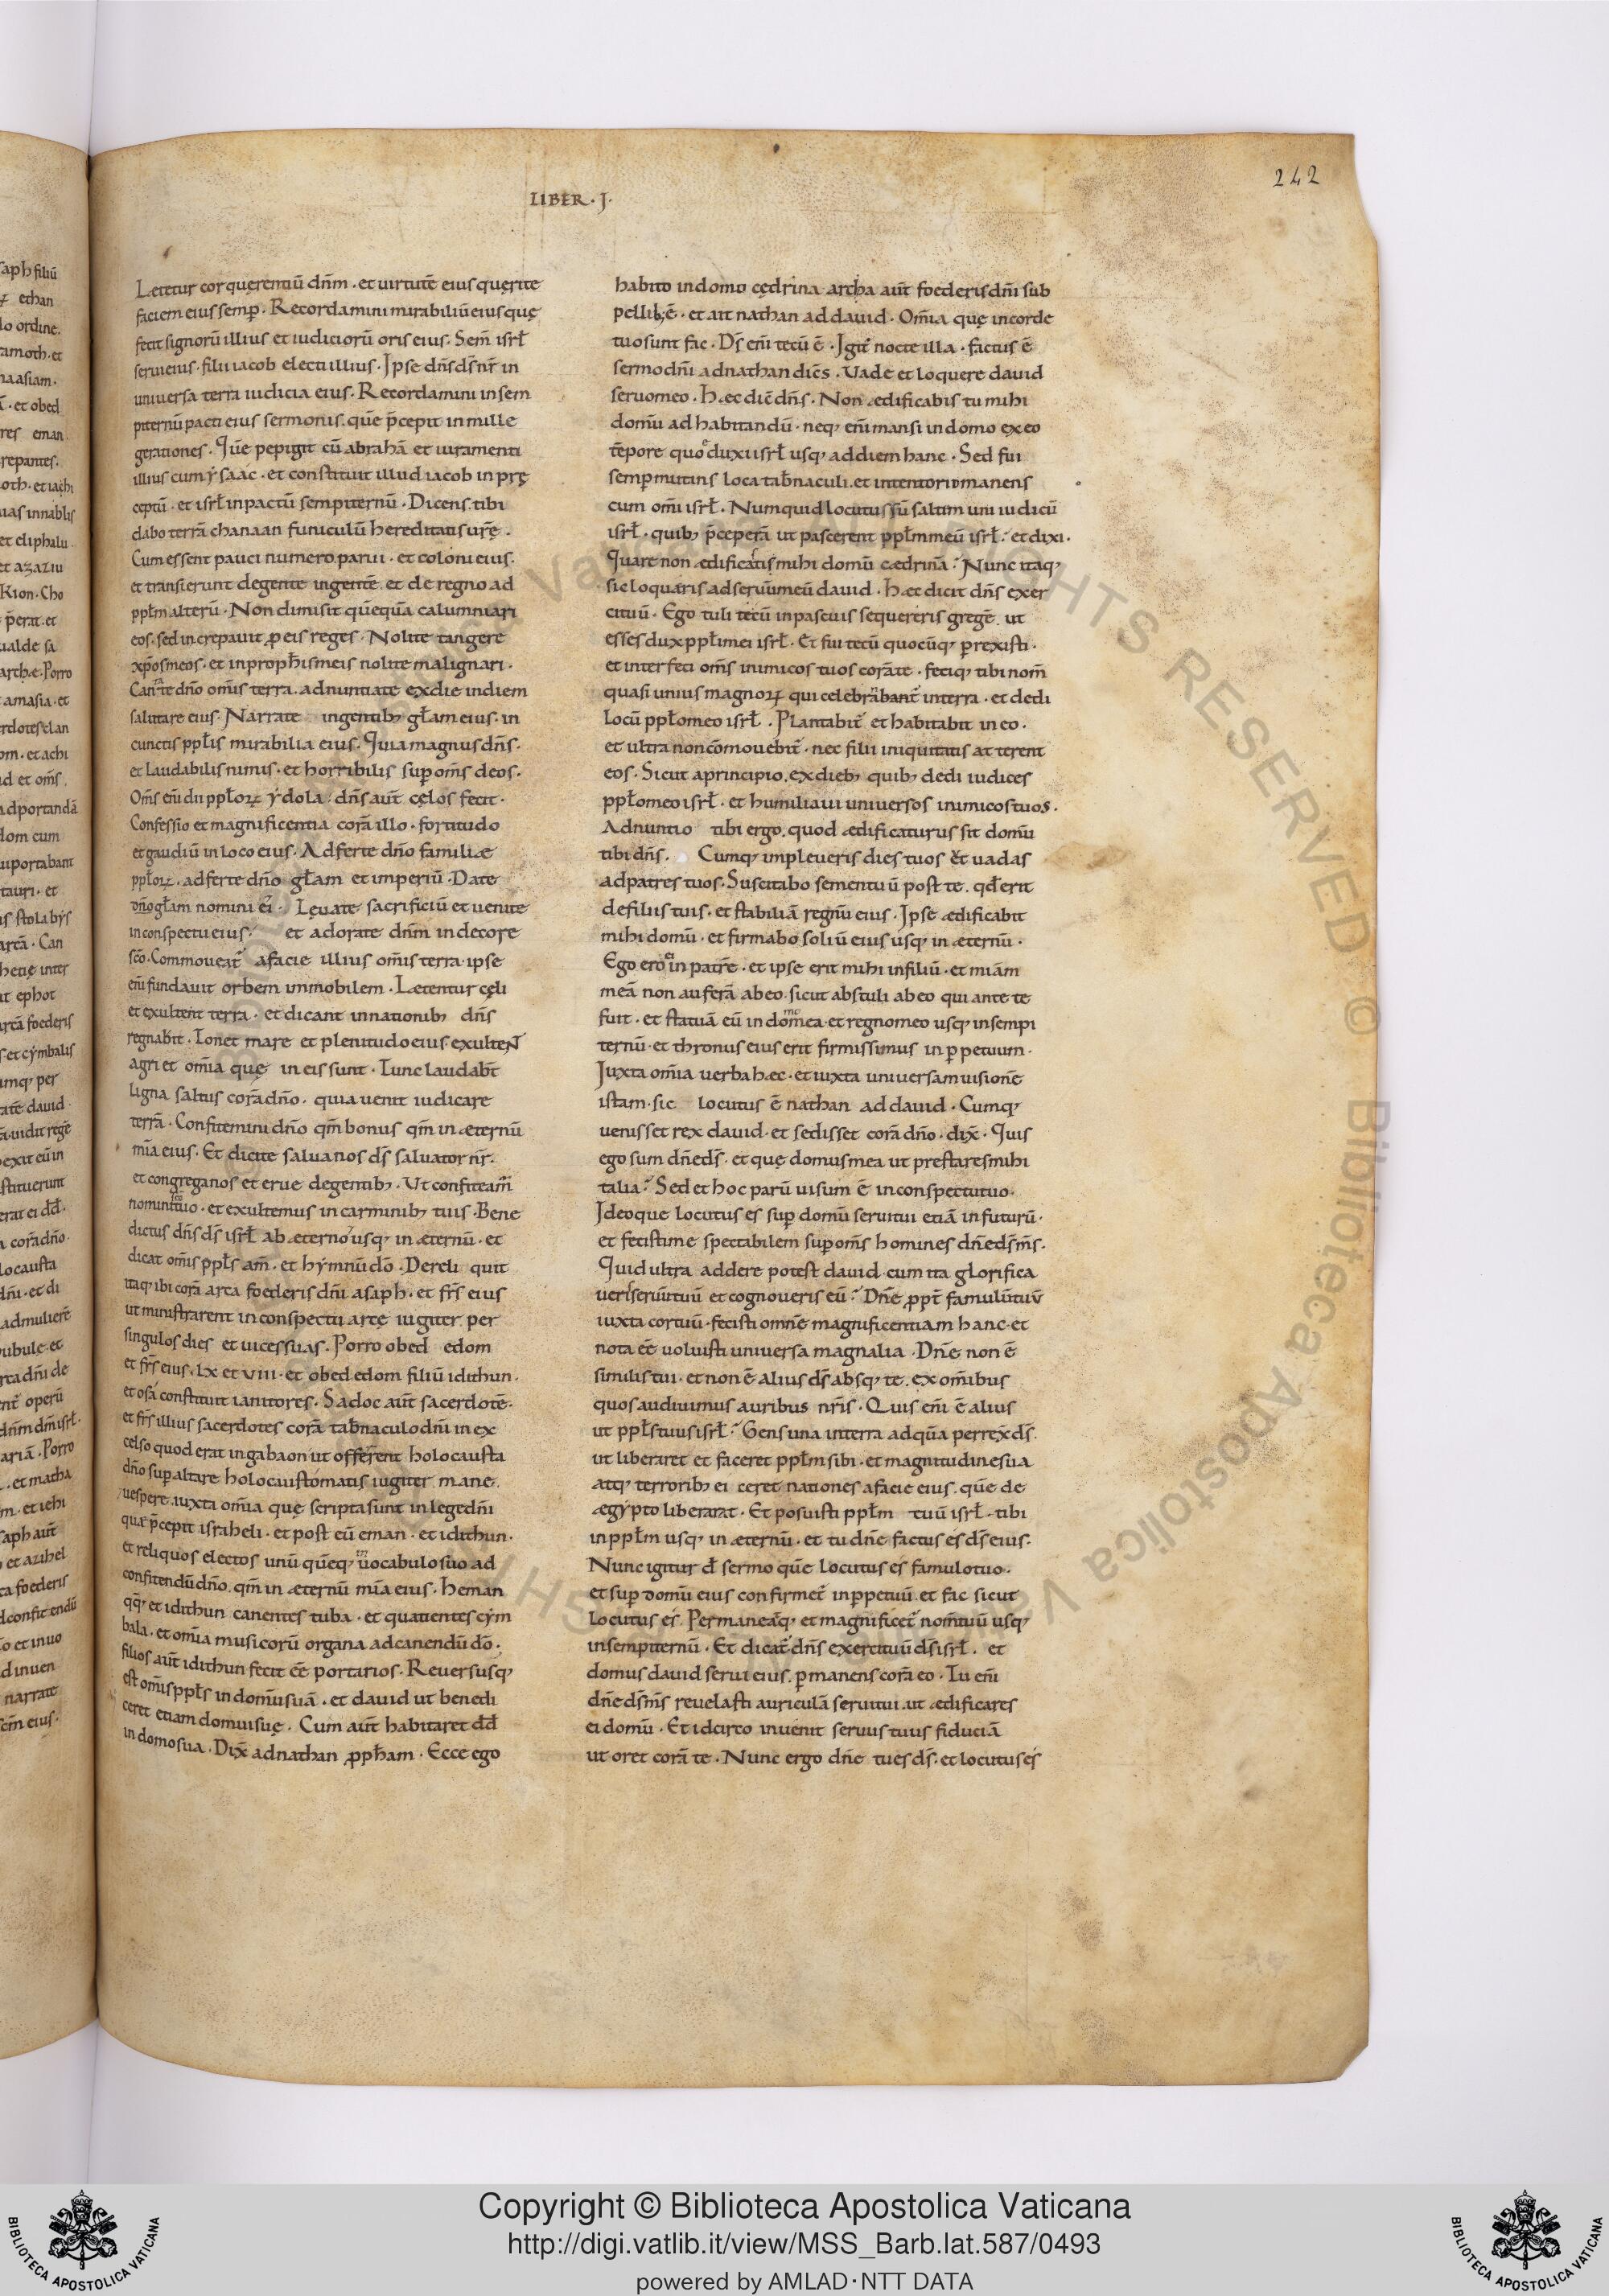 242
LIBER · J ·
Letetur cor querentiū dn̄m · et uirtutē eius querite
faciem eius semꝑ · Recordamini mirabiliū eius quę
fecit signorū illius et iudiciorū oris eius · Sem̄ isrł
serui eius · filii iacob electi illius · Ipse dn̄s ds̄ nr̄ in
uniuersa terra iudicia eius · Recordamini in sem
piternū pacti eius sermonis · quē p̄cepit in mille
gerationes · Quē pepigit cū abrahā et iuramenti
illius cum ysaac · et constituit illud iacob in prę
ceptū · et isrł in pactū sempiternū · Dicens · tibi
dabo terrā chanaan funiculū hereditatis ur̄ę ·
Cum essent pauci numero parui · et coloni eius ·
et transierunt de gente in gentē · et de regno ad
ppłm alterū · Non dimisit quēquā calumniari
eos · sed increpauit ꝓ eis reges · Nolite tangere
xp̄os meos · et in proph̄is meis nolite malignari ·
Cantate dn̄o om̄is terra · adnuntiate ex die in diem
salutare eius · Narrate in gentib; głam eius · in
cunctis ppłis mirabilia eius · Quia magnus dn̄s ·
et laudabilis nimis · et horribilis suꝑ om̄s deos ·
Om̄s eni dii ppłoꝝ ydola · dn̄s aut̄ cęlos fecit ·
Confessio et magnificentia corā illo · fortitudo
et gaudiū in loco eius · Adferte dn̄o familiæ
ppłoꝝ · adferte dn̄o głam et imperiū · Date
dn̄o głam nomini ei · Leuate sacrificiū et uenite
in conspectu eius · et adorate dn̄m in decore
sc̄o · Commoueat̄ a facie illius om̄is terra · ipse
eni fundauit orbem immobilem · Lætentur cęli
et exultent terra · et dicant in nationib; dn̄s
regnabit · Tonet mare et plenitudo eius exulteɴᴛ
agri et om̄ia quę in eis sunt · Tunc laudabt̄
ligna saltus corā dn̄o · quia uenit iudicare
terrā · Confitemini dn̄o qm̄ bonus qm̄ in æternū
mi̅a eius · Et dicite salua nos ds̄ saluator nr̄ ·
et congrega nos et erue de gentib; · Ut confiteam̄
nomini sc̄o tuo · et exultemus in carminib; tuis · Bene
dictus dn̄s ds̄ isrł ab æterno usq; in æternū · et
dicat om̄is ppłs am̄ · et hymnū do̅ · Dereli quit
itaq; ibi corā arca foederis dn̄i asaph · et fr̄s eius
ut ministrarent in conspectu arcę iugiter per
singulos dies et uices suas · Porro obed edom
et fr̄s eius · LX et VIII · et obed edom filiū idithun ·
et osa constituit ianitores · Sadoc aut̄ sacerdotē ·
et fr̄s illius sacerdotes corā tab̄naculo dn̄i in ex
celso quod erat in gabaon ut offerrent holocausta
dn̄o suꝑ altare holocaustomatis iugiter mane ·
uespere iuxta om̄ia quę scripta sunt in lege dn̄i
quæ p̄cepit israheli · et post eū eman · et idithun ·
et reliquos electos unū quēq; uocabulo suo ad
confitendū dn̄o · qm̄ in æternū mi̅a eius · heman
qq; et idithun canentes tuba · et quatientes cym
bala · et om̄ia musicorū organa ad canendū do̅ ·
filios aut̄ idithun fecit ēē portarios · Reuersusq;
est om̄is ppłs in domū suā · et dauid ut benedi
ceret etiam domui suę · Cum aut̄ habitaret dd̄
in domo sua · Dix̄ ad nathan ꝓph̄am · Ecce ego
habito in domo cędrina · archa aut̄ foederis dn̄i sub
pellib; ē · et ait nathan ad dauid · Om̄ia quę in corde
tuo sunt fac · Ds̄ eni tecū ē · Igit̄ nocte illa · factus ē
sermo dn̄i ad nathan dicēs · Uade et loquere dauid
seruo meo · Hæc dic̄ dn̄s · Non ædificabis tu mihi
domū ad habitandū · neq; eni mansi in domo ex eo
tēpore quo eduxi isrł usq; ad diem hanc · Sed fui
semꝑ mutans loca tab̄naculi · et in tentorio manens
cum om̄i isrł · Numquid locutus sū saltim uni iudicū
isrł · quib; p̄ceperā ut pascerent ppłm meū isrł · et dixi ·
Quare non ædificatis mihi domū cædrinā · Nunc itaq;
sic loquaris ad seruū meū dauid · Hæc dicit dn̄s exer
cituū · Ego tuli tecū in pascuis sequereris gregē · ut
esses dux ppłi mei isrł · Et fui tecū quocūq; ꝑrexisti ·
et interfeci om̄s inimicos tuos corā te · feciq; tibi nom̄
quasi unius magnoꝝ qui celebrabant̄ in terra · et dedi
locū ppło meo isrł · Plantabit̄ et habitabit in eo ·
et ultra non cōmouebit̄ · nec filii iniquitatis atterent
eos · Sicut a principio · ex dieb; quib; dedi iudices
ppło meo isrł · et humiliaui uniuersos inimicos tuos ·
Adnuntio tibi ergo · quod ædificaturus sit domū
tibi dn̄s · Cumq; impleueris dies tuos et uadas
ad patres tuos · Suscitabo sementuū post te · qd̄ erit
de filiis tuis · et stabiliā regnū eius · Ipse ædificabit
mihi domū · et firmabo soliū eius usq; in æternū ·
Ego ero ei in patrē · et ipse erit mihi in filiū · et mi̅am
meā non auferā ab eo · sicut abstuli ab eo qui ante te
fuit · et statuā eū in domo mea · et regno meo usq; in sempi
ternū · et thronus eius erit firmissimus in ꝑpetuum ·
Juxta om̄ia uerba hæc · et iuxta uniuersam uisionē
istam · sic locutus ē nathan ad dauid · Cumq;
uenisset rex dauid · et sedisset corā dn̄o · dix̄ · Quis
ego sum dn̄e ds̄ · et quę domus mea ut prestares mihi
talia · Sed et hoc parū uisum ē in conspectu tuo ·
Ideoque locutus es suꝑ domū serui tui etiā in futurū ·
et fecisti me spectabilem suꝑ om̄s homines dn̄e ds̄ m̄s ·
Quid ultra addere potest dauid · cum ita glorifica
ueris seruū tuū et cognoueris eū · Dn̄e ꝓpt̄ famulū tuū
iuxta cor tuū · fecisti omnē magnificentiam hanc · et
nota ēē uoluisti uniuersa magnalia · Dn̄e non ē
similis tui · et non ē alius ds̄ absq; te · ex om̄ibus
quos audiuimus auribus nr̄is · Quis eni ē alius
ut ppłs tuus isrł · Gens una in terra ad quā perrex̄ ds̄ ·
ut liberaret et faceret ppłm sibi · et magnitudine sua
atq; terrorib; ei ceret nationes a facie eius · quē de
ægypto liberarat · Et posuisti ppłm tuū isrł · tibi
in ppłm usq; in æternū · et tu dn̄e factus es ds̄ eius ·
Nunc igitur d̄ sermo quē locutus es famulo tuo ·
et suꝑ domū eius confirmet̄ in ꝑpetuū · et fac sicut
locutus es · Permaneatq; et magnificet̄ nom̄ tuū usq;
in sempiternū · Et dicat̄ dn̄s exercituū ds̄ isrł · et
domus dauid serui eius · ꝑmanens corā eo · Tu eni
dn̄e ds̄ m̄s reuelasti auriculā serui tui · ut ædificares
ei domū · Et idcirco inuenit seruus tuus fiduciā
ut oret corā te · Nunc ergo dn̄e tu es ds̄ · et locutus es
Copyright © Biblioteca Apostolica Vaticana
http://digi.vatlib.it/view/MSS_Barb.lat.587/0493
powered by AMLAD·NTT DATA